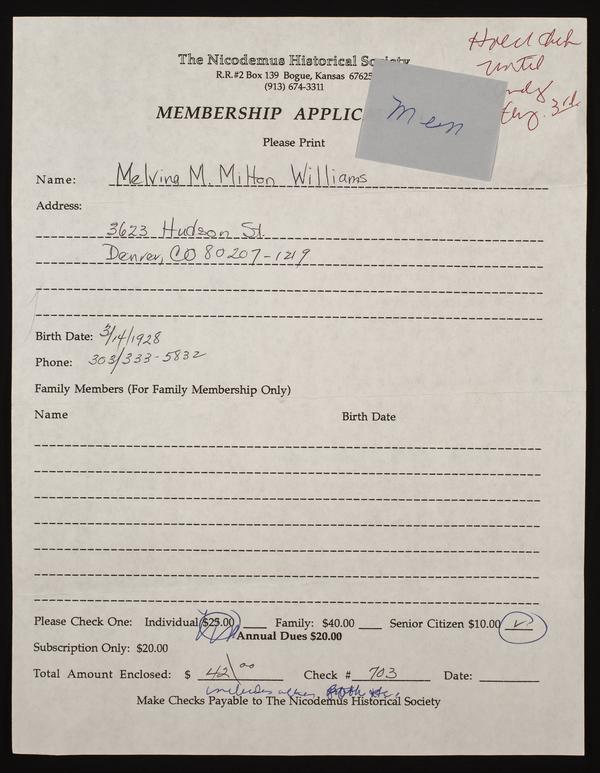 The Nicodemus Historical Society
R.R.#2 Box 139 Bogue, Kansas 67625
(913) 674-3311
Hold
until
3rd
Mem
MEMBERSHIP APPLIC
Please Print
Name: Melvina M. Milton Williams
Address:
3623 Hudson St.
Denver, CO 80207-1219
Birth Date: 3/14/1928
Phone: 303/333-5832
Family Members (For Family Membership Only)
Name Birth Date
Please Check One: Individual $25.00 ___ Family: $40.00 ___ Senior Citizen $10.00 ✓
Annual Dues $20.00
Subscription Only: $20.00
Total Amount Enclosed: $ 42.00 Check # 703 Date: ___
includes
Make Checks Payable to The Nicodemus Historical Society